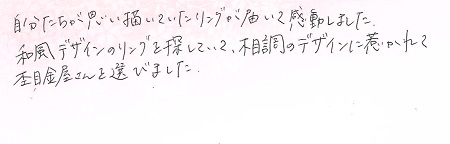 自分たちが思い描いていたリングが届いて感動しました。
和風デザインのリングを探していて、木目調のデザインに惹かれて
杢目金屋さんを選びました。